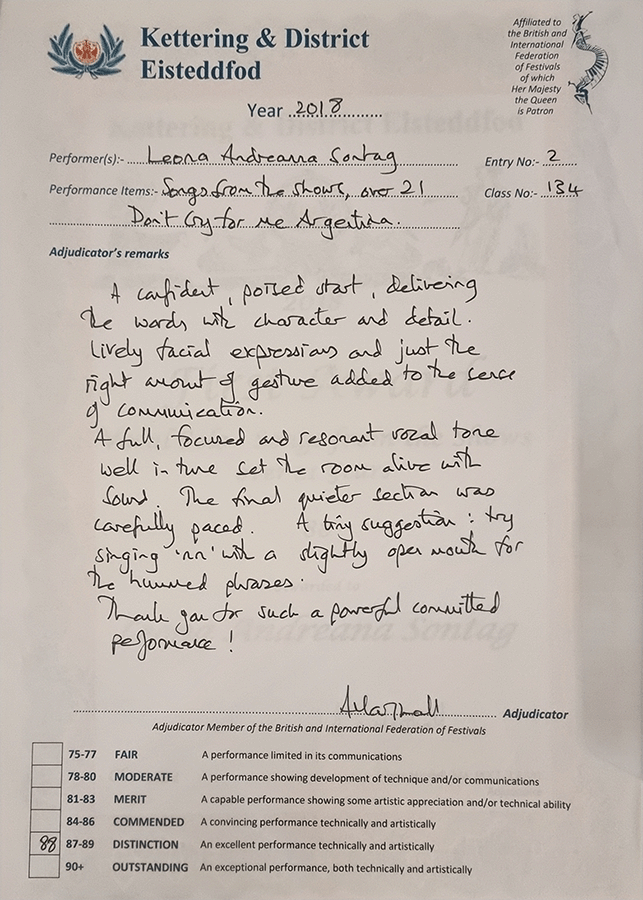 Kettering & District
Eisteddfod
Affiliated to
the British and
International
Federation
of Festivals
of which
Her Majesty
the Queen
is Patron
Year 2018
Performer(s):- Leona Andreana Sontag Entry No:- 2
Performance Items:- Songs from the shows, over 21 Class No:- 134
Don't Cry for me Argentina.
Adjudicator's remarks
A confident, poised start, delivering
the words with character and detail.
Lively facial expressions and just the
right amount of gesture added to the sense
of communication.
A full, focused and resonant vocal tone
well in tune set the room alive with
sound. The final quieter section was
carefully paced. A tiny suggestion: try
singing 'nn' with a slightly open mouth for
the hummed phrases.
Thank you for such a powerful committed
performance!
Adjudicator
Adjudicator Member of the British and International Federation of Festivals
75-77 FAIR A performance limited in its communications
78-80 MODERATE A performance showing development of technique and/or communications
81-83 MERIT A capable performance showing some artistic appreciation and/or technical ability
84-86 COMMENDED A convincing performance technically and artistically
88 87-89 DISTINCTION An excellent performance technically and artistically
90+ OUTSTANDING An exceptional performance, both technically and artistically